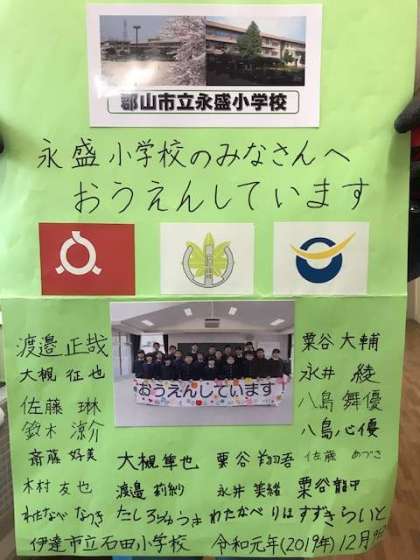 郡山市立永盛小学校
永盛小学校のみなさんへ
おうえんしています
おうえんしています
渡邉 正哉
大槻 征也
佐藤 琳
鈴木 涼介
斎藤 好美
木村 友也
わたなべ なつき
粟谷 大輔
永井 綾
八島 舞優
八島 心優
佐藤 めづき
大槻 隼也
粟谷
渡邉 莉紗
永井 美緒
粟谷 龍甲
たしろ ゆうき
わたなべ りは
すずき らいと
伊達市立石田小学校 令和元年(2019年)12月9日